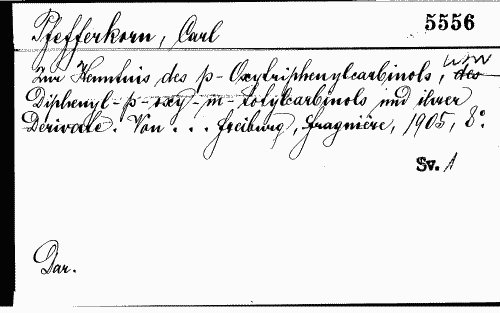 Pfefferkorn, Carl 5556
Zur Kenntnis des p-Oxytriphenylcarbinols, usw
des
Diphenyl-p-oxy-m-tolylcarbinols und ihrer
Derivate. Von . . . Freiburg, Fragnière, 1905, 8°.
Sv. 1
Dar.